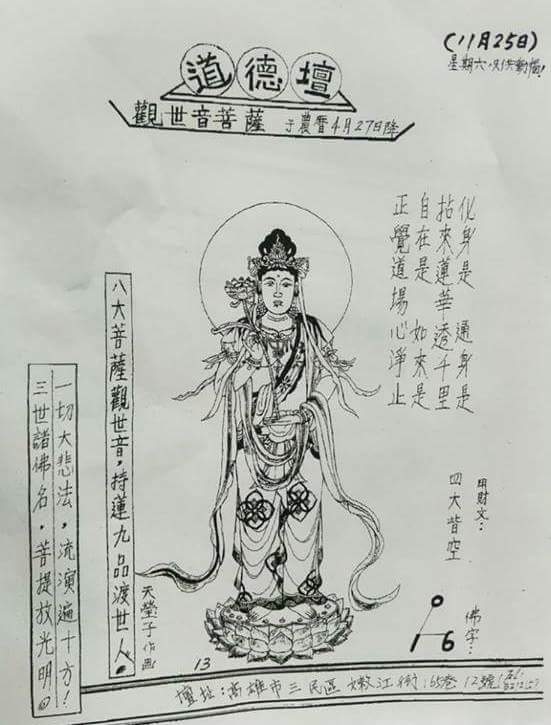 (11月25日)
星期六.只供動腦!
道德壇
觀世音菩薩 于農曆4月27日降
化身是 通身是
拈來蓮華透千里
自在是 如來是
正覺道場心淨止
八大菩薩觀世音,持蓮九品渡世人.
一切大悲法,流演遍十方!
三世諸佛名.菩提放光明。
用財文:
四大皆空
佛字:
0
1 6
天瑩子作画
13
壇址:高雄市三民區嫩江街:65巷12號